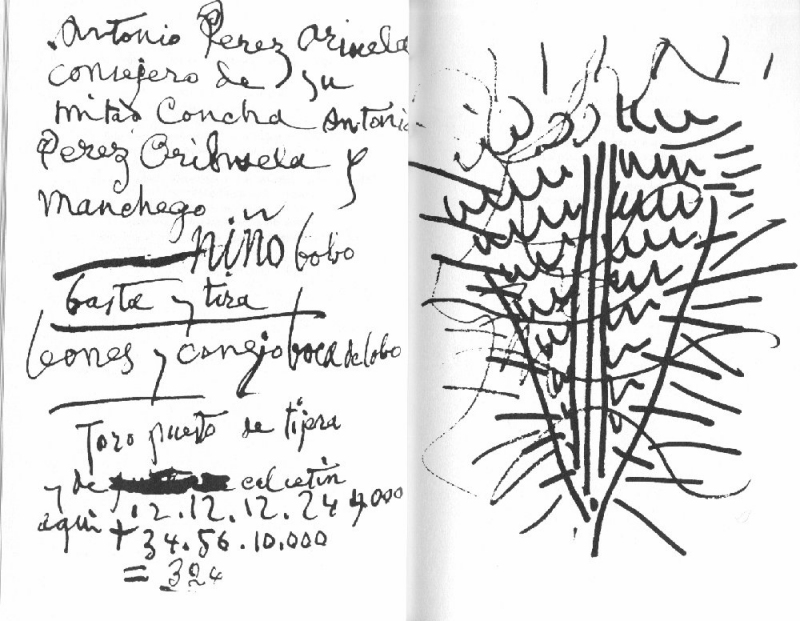 Antonio Perez Orihuela
consejero de su
mitad Concha Antonio
Perez Orihuela y
Manchego
niño bobo
basta y tira
leones y conejo boca de lobo
Toro puesto de
y de calcetin
aqui 12.12.12.24 4.000
+ 34.56.10.000
= 324